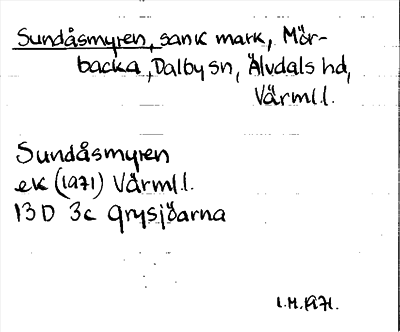 Sundåsmyren, sank mark, Mör-
backa, Dalby sn, Älvdals hd,
Värml.l.
Sundåsmyren
ek (1971) Värml.l.
13D 3c Grysjöarna
I.M.1971.